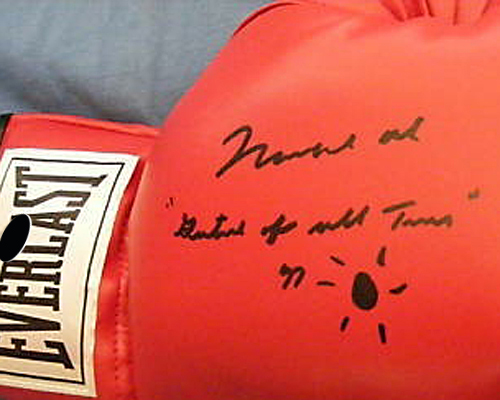 Muhammad Ali
"Greatest of all Times"
EVERLAST